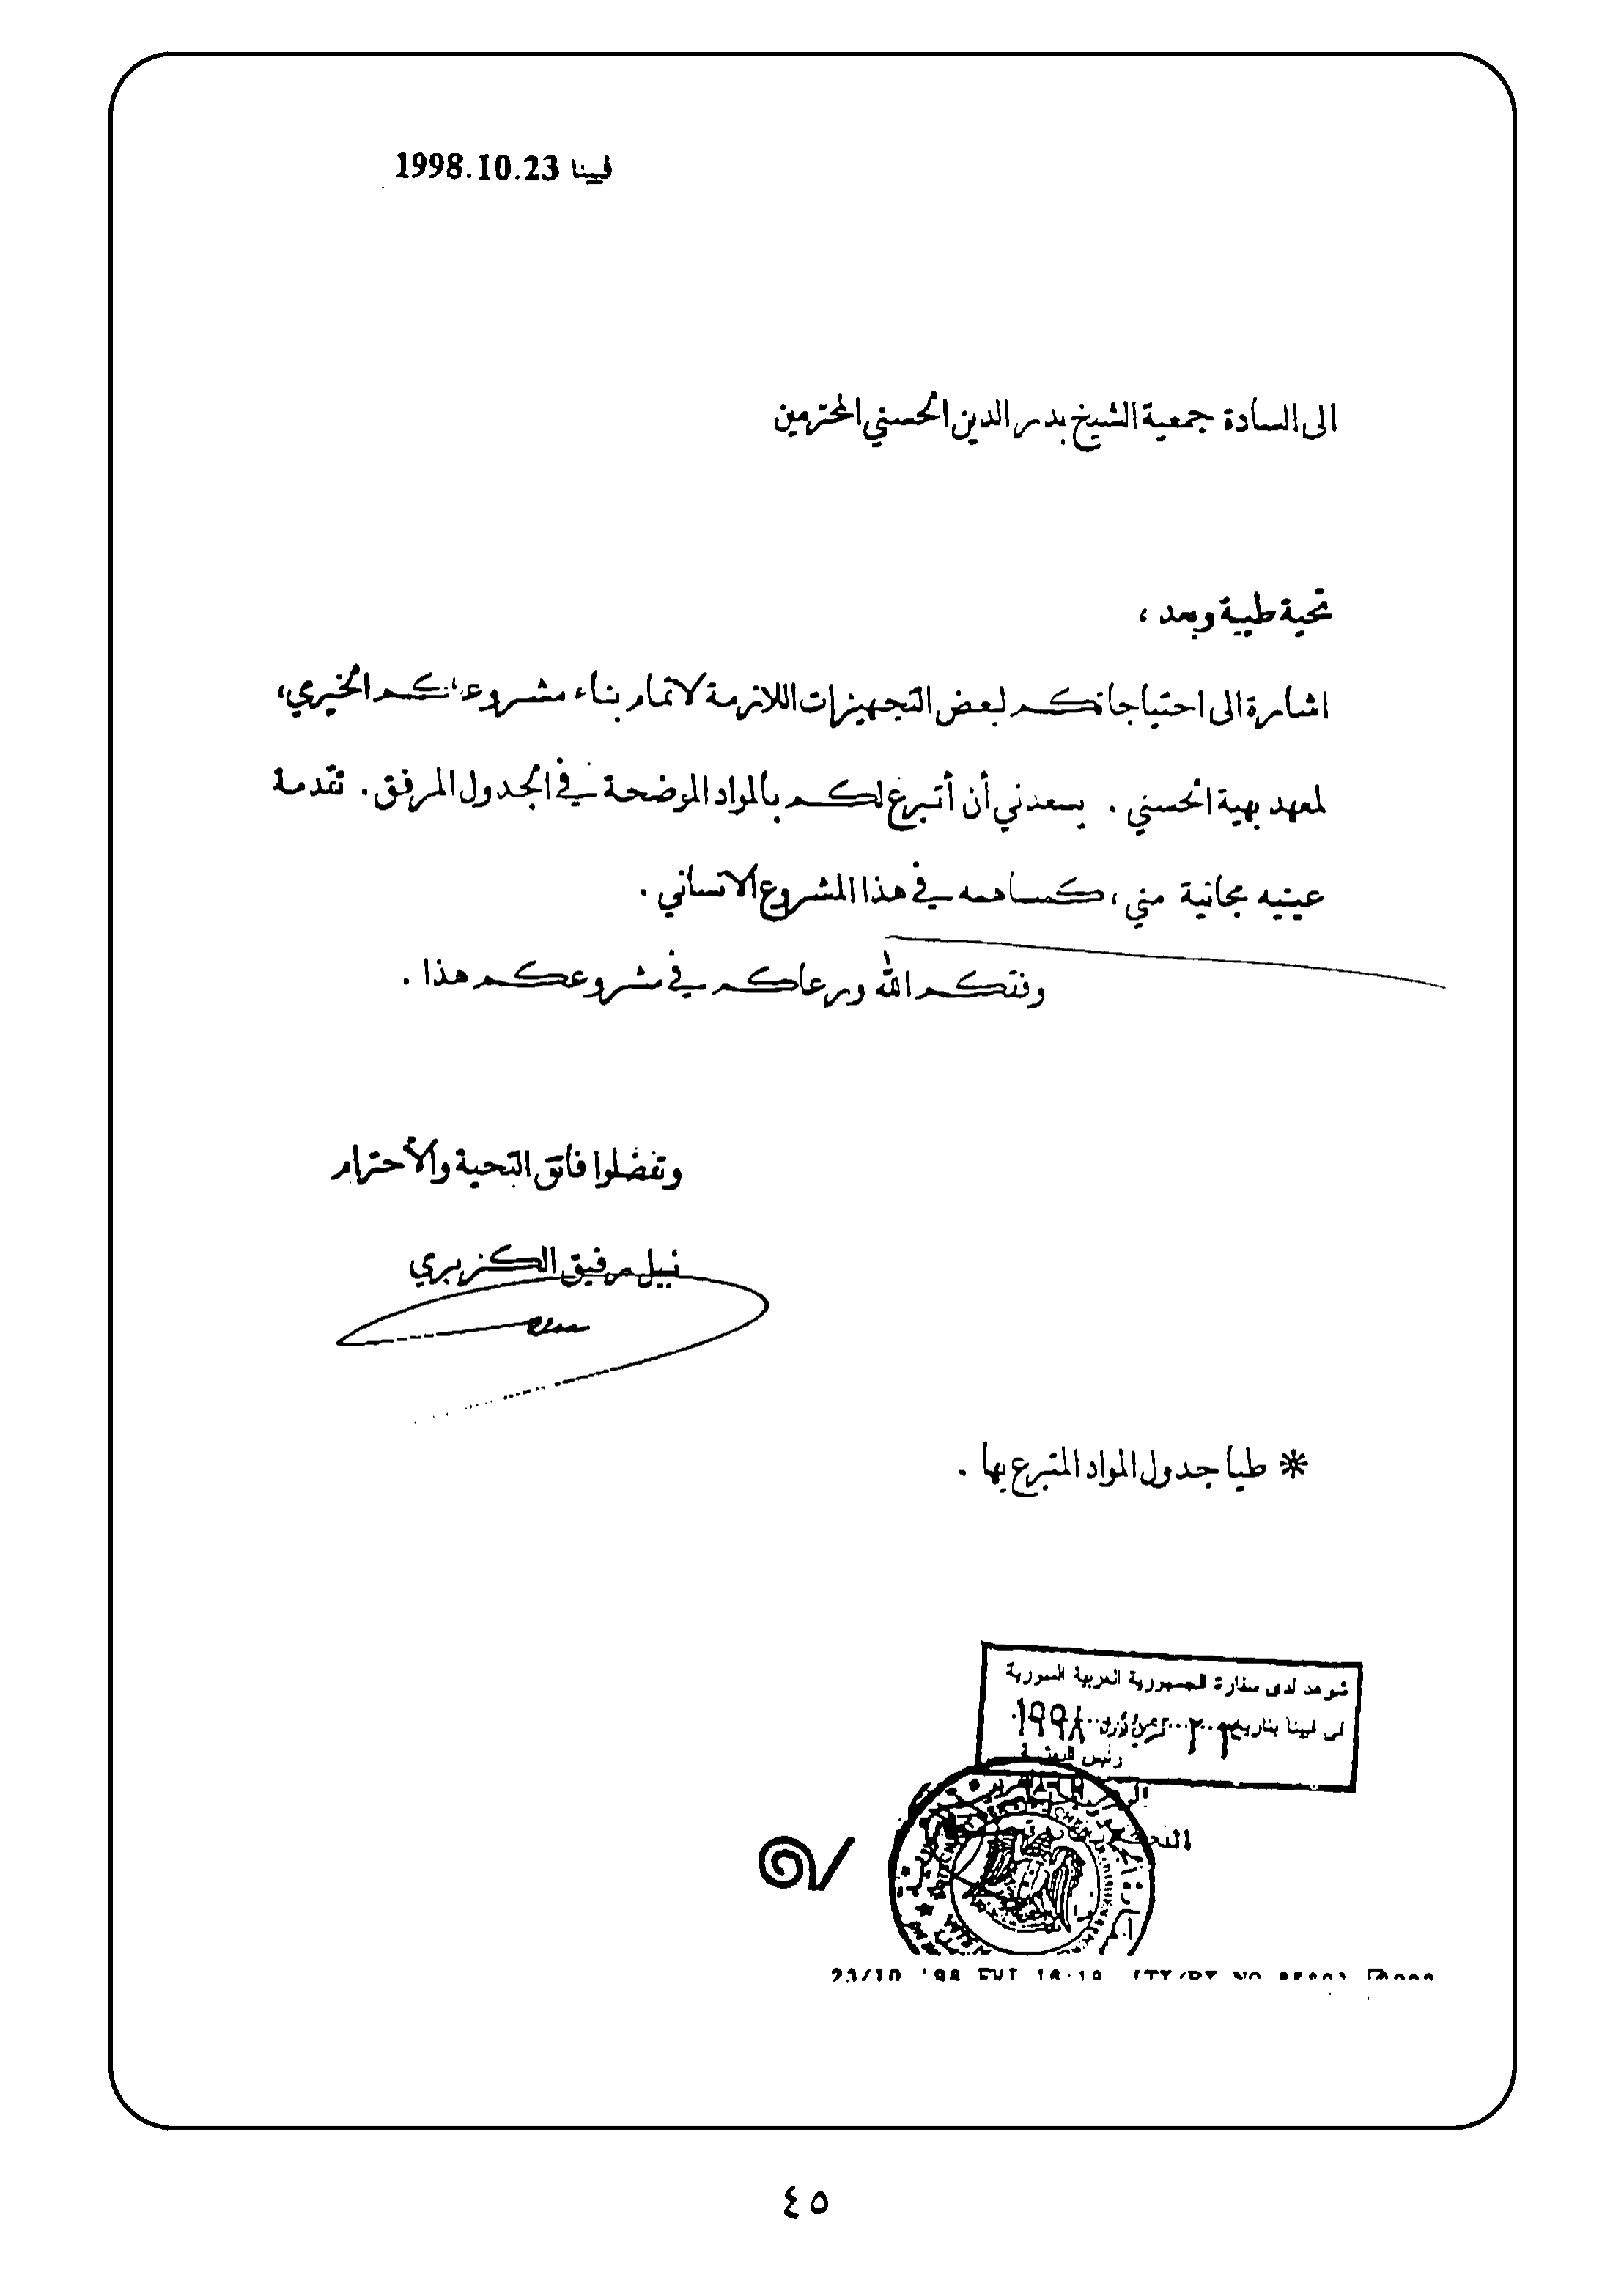 فيينا 1998.10.23
الى السادة جمعية الشيخ بدر الدين الحسني المحترمين
تحية طيبة وبعد ،
اشارة الى احتياجاتكم لبعض التجهيزات اللازمة لاتمام بناء مشروعاتكم الخيري،
لمعهد بهية الحسني . يسعدني أن أتبرع لكم بالمواد الموضحة في الجدول المرفق. تقدمة
عينيه مجانية مني ، كمساهمه في هذا المشروع الانساني .
وفقكم الله ورعاكم في مشروعكم هذا .
وتفضلوا فائق التحية والأحترام
نبيل رفيق الكزبري
* طيا جدول المواد المتبرع بها .
شوهد لدى سفارة الجمهورية العربية السورية
في فيينا بتاريخ ٢٣ تشرين أول ١٩٩٨
رئيس البعثة
23/10 '98 FRI 16:19
٤٥